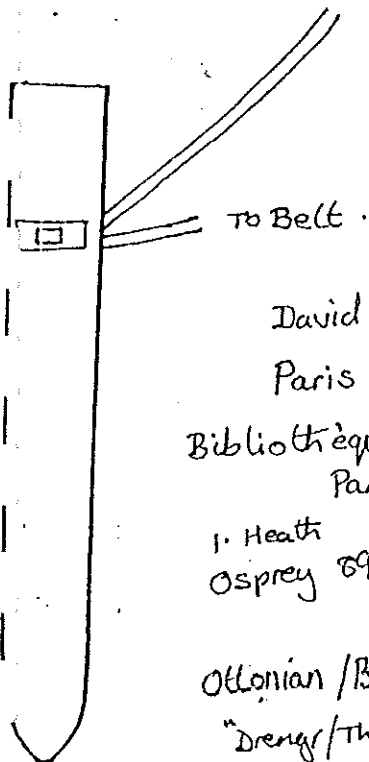 To Belt.
David
Paris
Bibliothèqu
Par
I. Heath
Osprey 89
Ottonian / B
"Drengr/Th